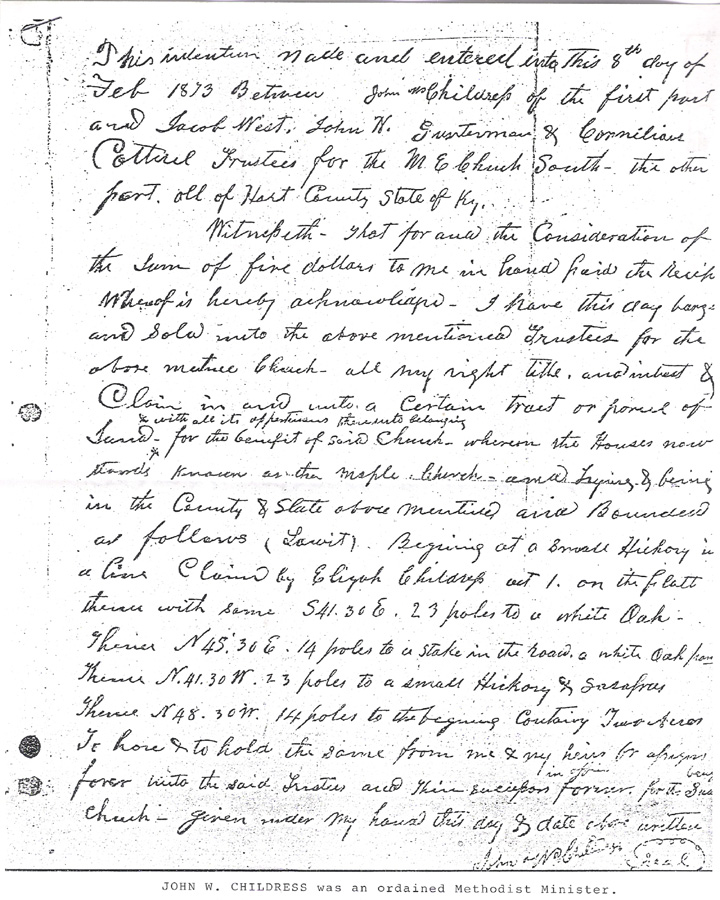 This indenture made and entered into This 8th day of
Feb 1873 Between John W Childress of the first part
and Jacob West, John H. Gunterman & Cornilious
Cotterel Trustees for the M E Church South - the other
part. all of Hart County State of Ky.
Witnesseth - That for and the Consideration of
the Sum of five dollars to me in hand paid the Receip
Whereof is hereby acknowledge - I have this day barg-
and Sold unto the above mentioned Trustees for the
above Church - all my right title, and intrest &
Claim in and unto a Certain tract or parcel of
& with all its thereunto belonging
Land - for the benefit of said Church - whereon the Houses now
stands & Known as the Maple Church - and Lying & being
in the County & State above mentined and Bounded
as follows (Towit). Begining at a Small Hickory in
a line Claim by Elijah Childress on the flatt
thence with same S41.30 E. 23 poles to a white Oak -
Thence N 45.30 E. 14 poles to a stake in the road. a white Oak
Thence N.41.30 W. 23 poles to a small Hickory & Sasafras
Thence N 48.30 W. 14 poles to the begining Containg Two Acres
To have & to hold the same from me & my heirs or
forever unto the said Trustees and their forever. for the
Church - given under my hand this day & date above written
John W Childress (Seal)
JOHN W. CHILDRESS was an ordained Methodist Minister.